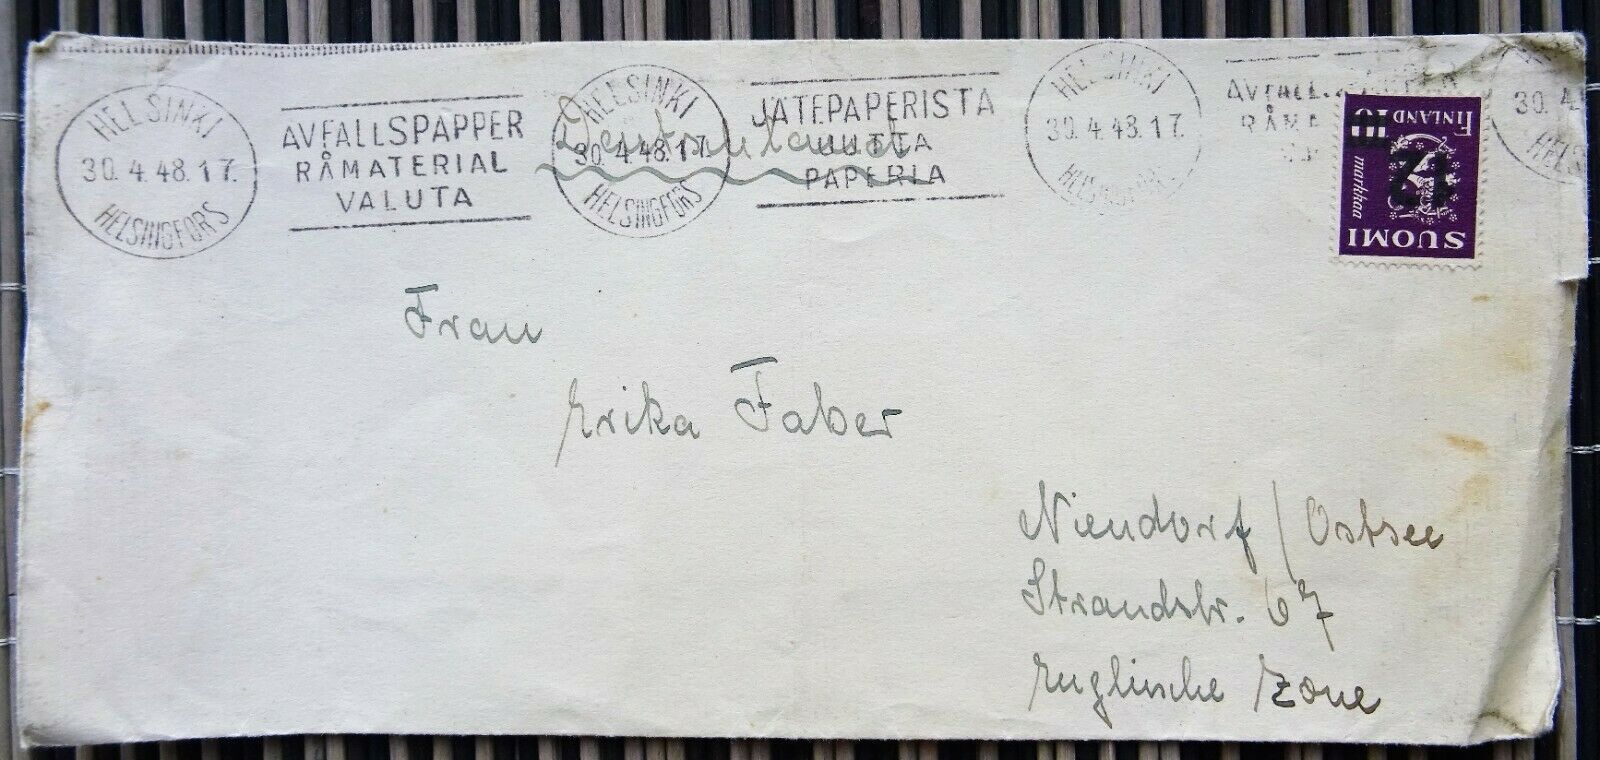 HELSINKI
30.4.48.17.
HELSINGFORS
AVFALLSPAPPER
RÅMATERIAL
VALUTA
HELSINKI
30.4.48.17.
HELSINGFORS
JÄTEPAPERISTA
UUTTA
PAPERIA
Deutschland
HELSINKI
30.4.48.17.
HELSINGFORS
30.4
HELS
SUOMI
markkaa
12
10
FINLAND
Frau
Erika Faber
Niendorf / Ostsee
Strandstr. 67
Englische Zone